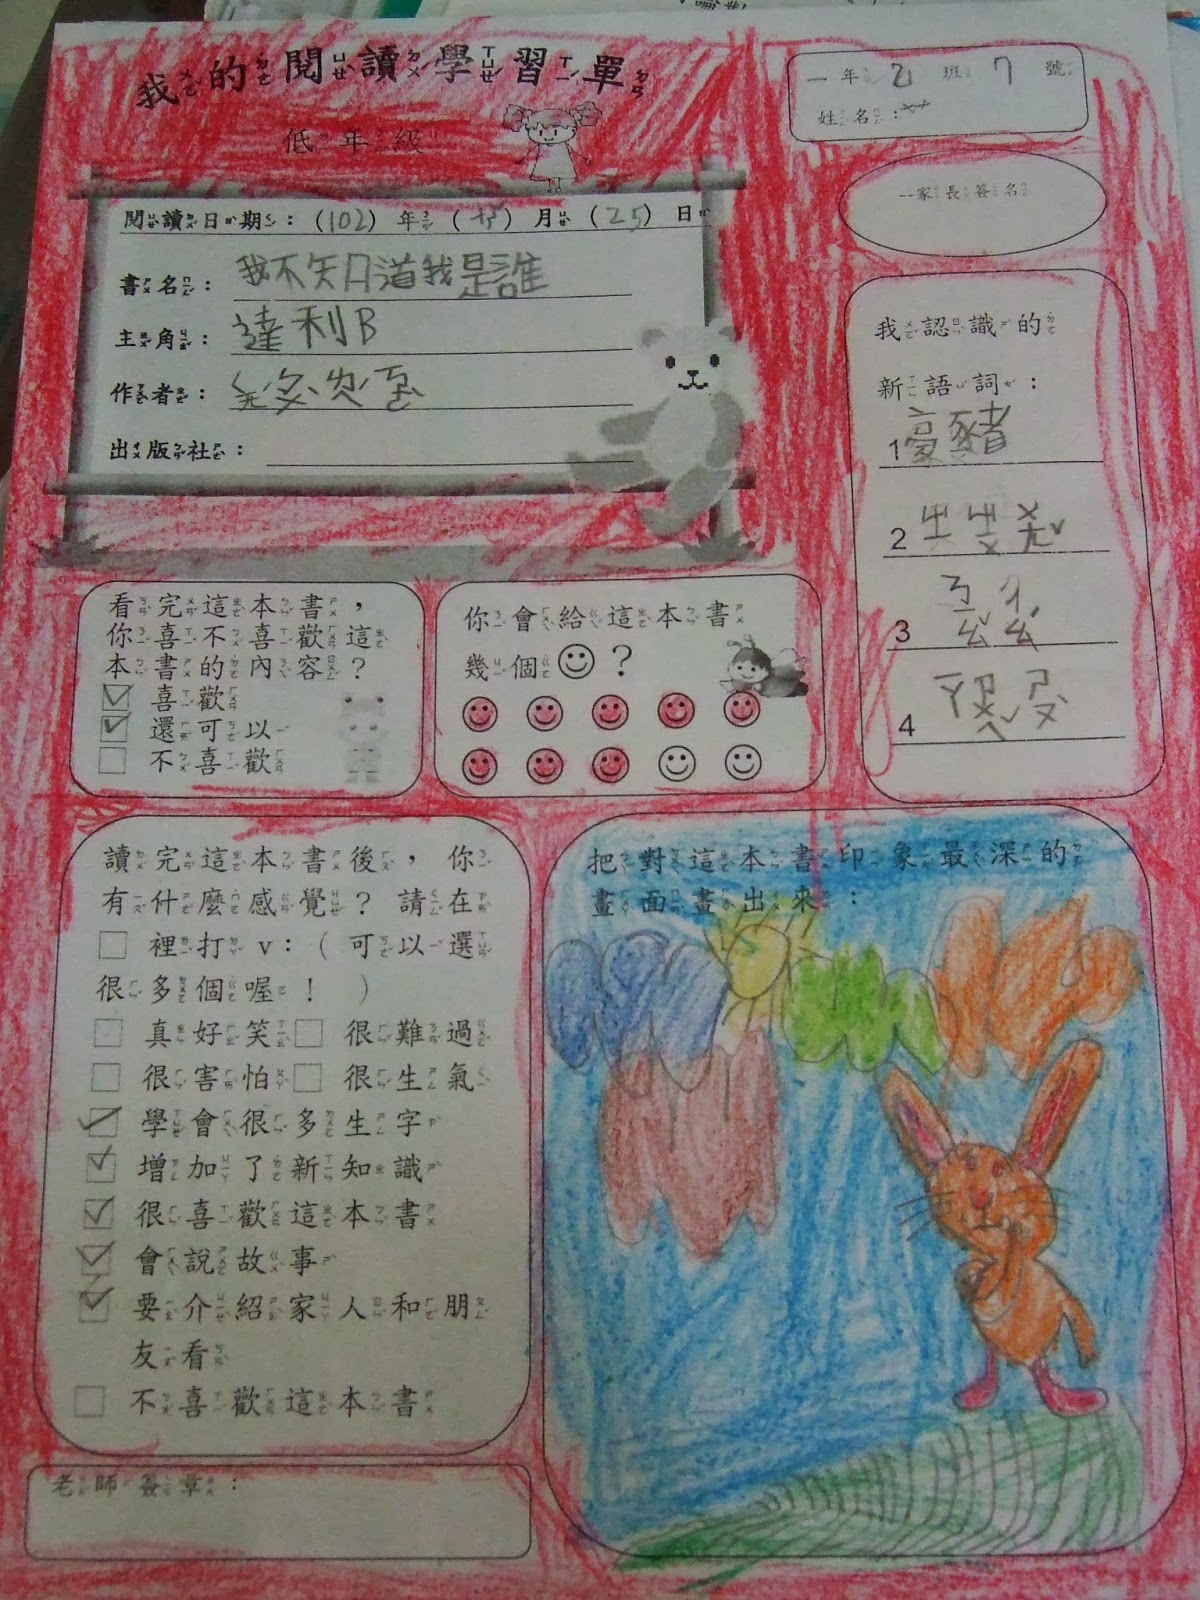 我的閱讀學習單
低年級
一年乙班7號
姓名:
家長簽名
閱讀日期:(102)年( )月(25)日
書名:我不知道我是誰
主角:達利B
作者:
出版社:
我認識的
新語詞:
1豪豬
2
3
4
看完這本書,
你喜不喜歡這
本書的內容?
喜歡
還可以
不喜歡
你會給這本書
幾個 ?
讀完這本書後,你
有什麼感覺?請在
裡打v:(可以選
很多個喔!)
真好笑 很難過
很害怕 很生氣
學會很多生字
增加了新知識
很喜歡這本書
會說故事
要介紹家人和朋
友看
不喜歡這本書
把對這本書印象最深的
畫面畫出來:
老師簽章: